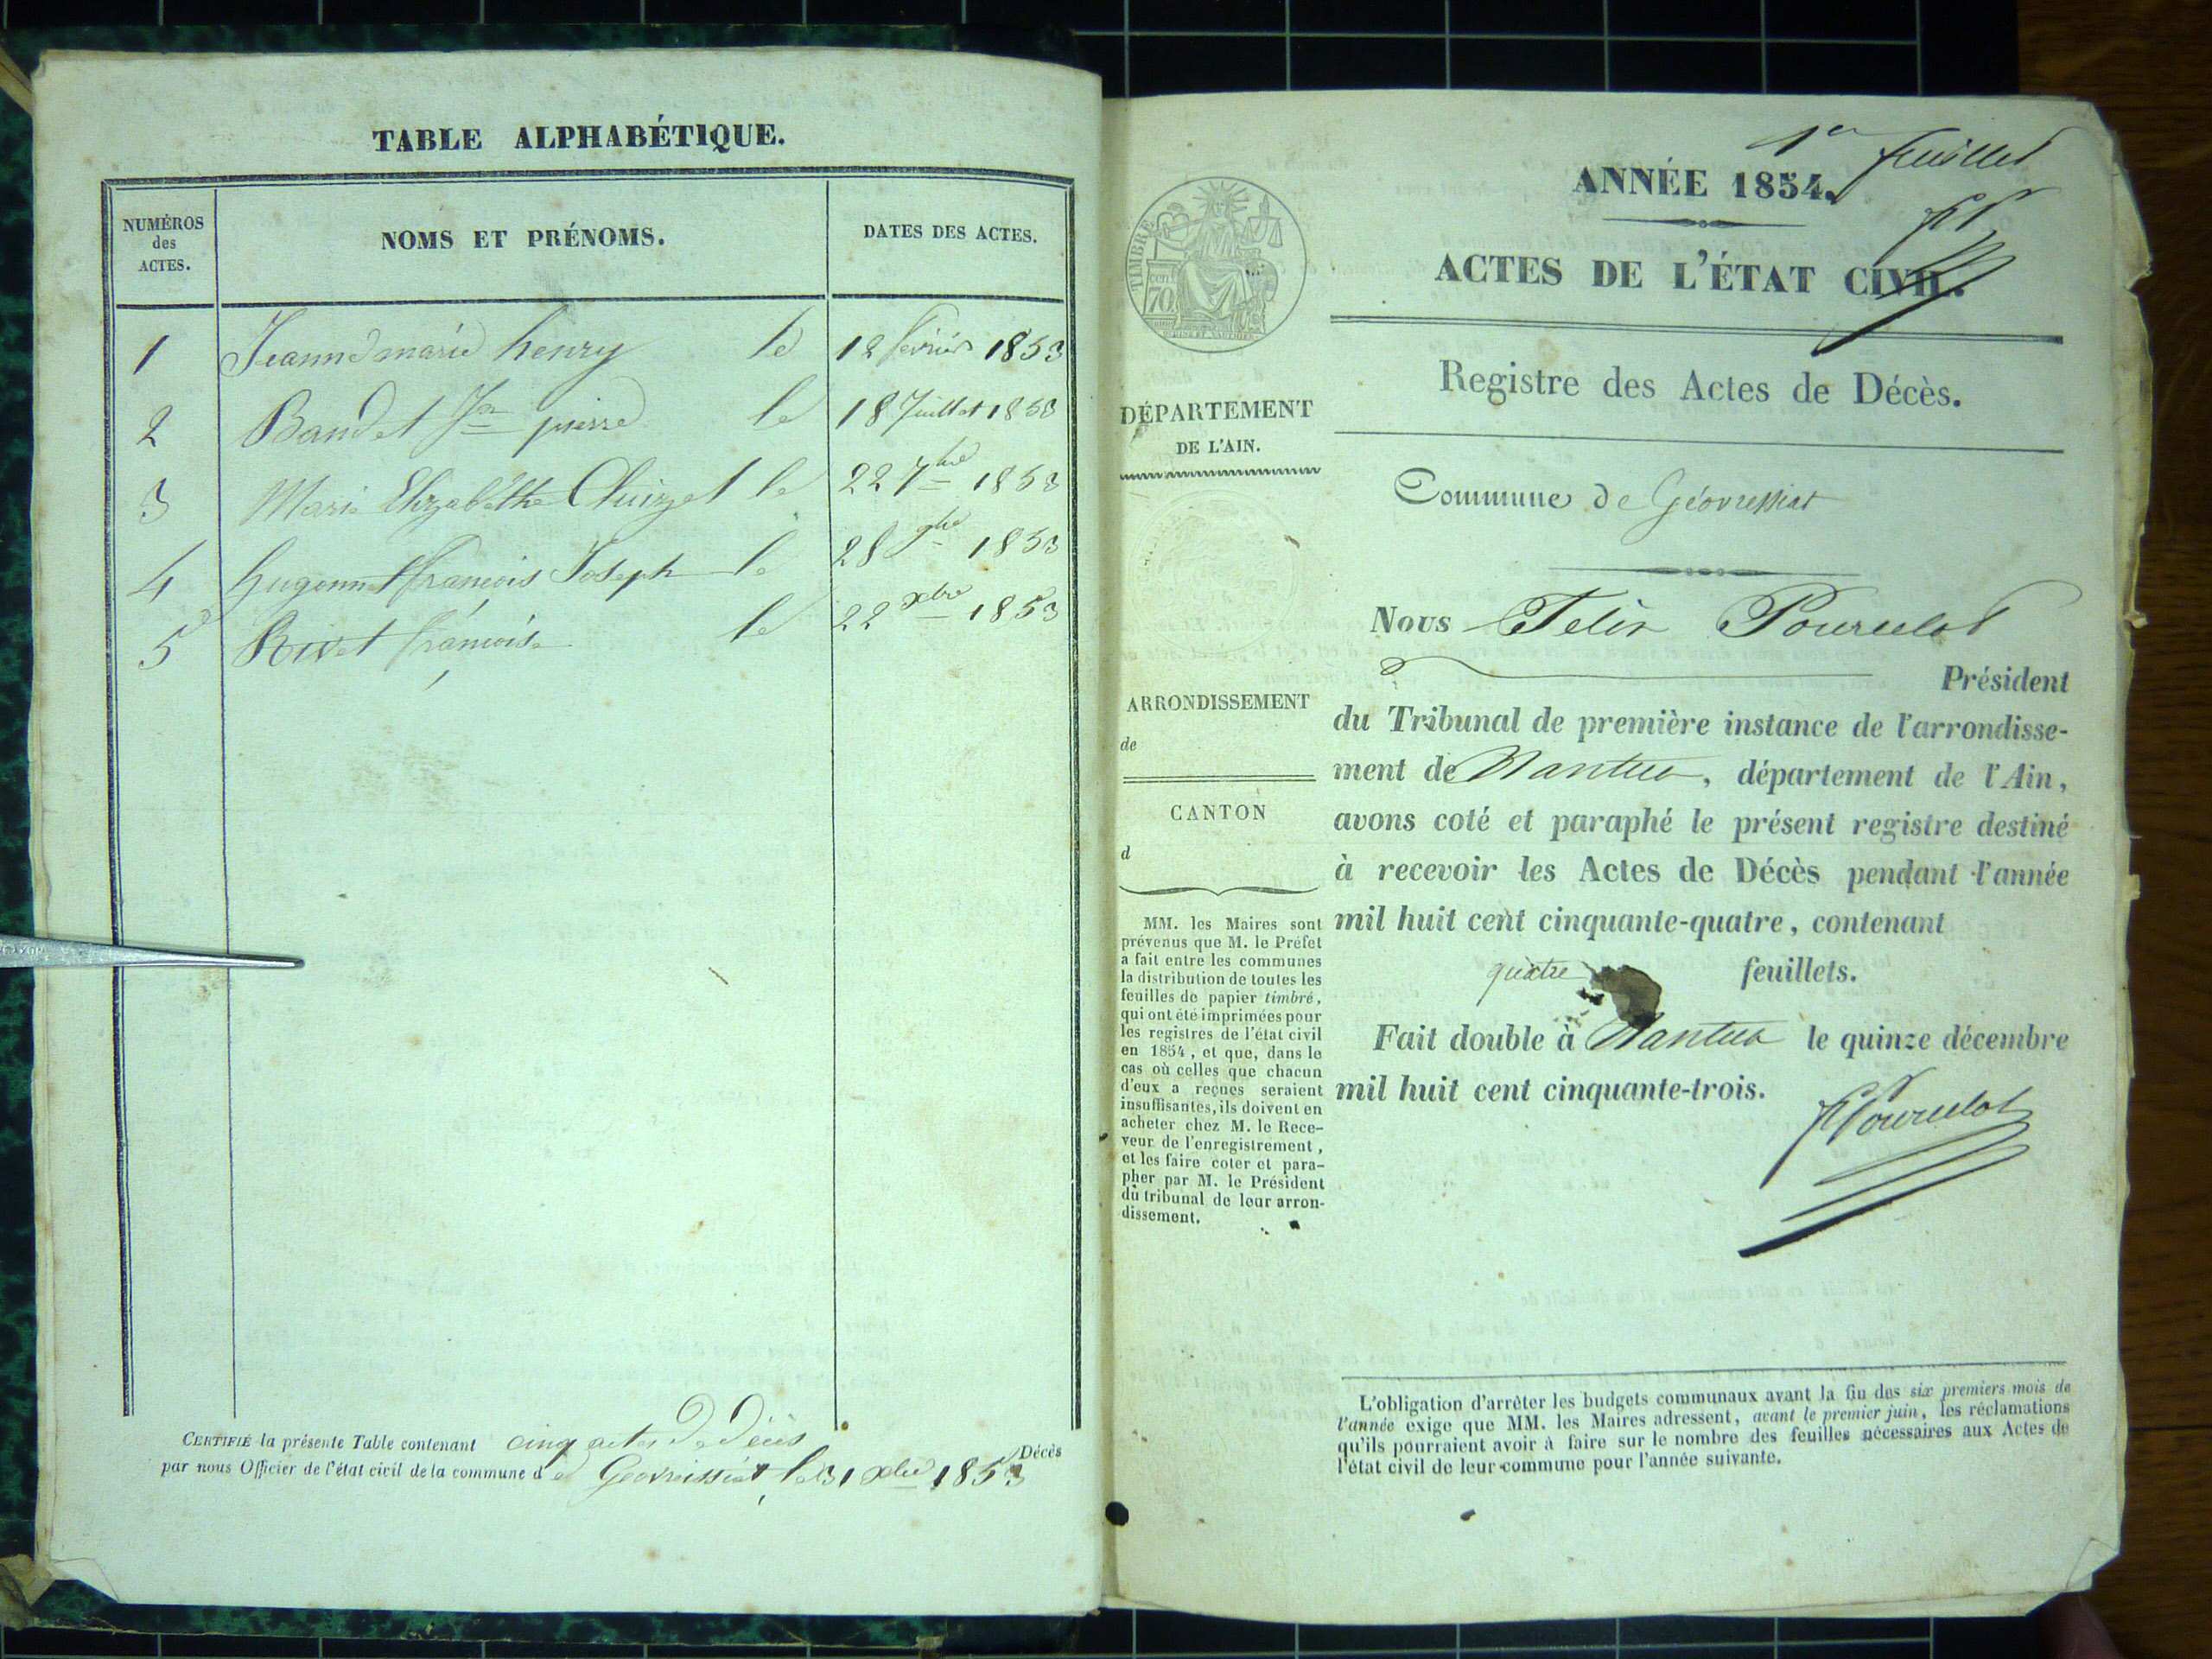 TABLE ALPHABÉTIQUE.
NUMÉROS
des
ACTES.
NOMS ET PRÉNOMS.
DATES DES ACTES.
1 Jeanne marie henry le 12 février 1853
2 Baudet Jn pierre le 18 Juillet 1853
3 Marie Elizabethe Chuizet le 22 7bre 1853
4 hugonnet françois Joseph le 28 9bre 1853
5 Rivet françoise le 22 xbre 1853
CERTIFIÉ la présente Table contenant cinq actes de décès Décès
par nous Officier de l'état civil de la commune d e Geovreissiat, le 31 xbre 1853
1er feuillet
ANNÉE 1854.
FP
ACTES DE L'ÉTAT CIVIL.
Registre des Actes de Décès.
TIMBRE
70
DÉPARTEMENT
DE L'AIN.
ARRONDISSEMENT
de
CANTON
d
MM. les Maires sont
prévenus que M. le Préfet
a fait entre les communes
la distribution de toutes les
feuilles de papier timbré,
qui ont été imprimées pour
les registres de l'état civil
en 1854, et que, dans le
cas où celles que chacun
d'eux a reçues seraient
insuffisantes, ils doivent en
acheter chez M. le Rece-
veur de l'enregistrement,
et les faire coter et para-
pher par M. le Président
du tribunal de leur arron-
dissement.
Commune de Géovressiat
Nous Félix Pourcelot
Président
du Tribunal de première instance de l'arrondisse-
ment de Nantua, département de l'Ain,
avons coté et paraphé le présent registre destiné
à recevoir les Actes de Décès pendant l'année
mil huit cent cinquante-quatre, contenant
quatre feuillets.
Fait double à Nantua le quinze décembre
mil huit cent cinquante-trois.
FPourcelot
L'obligation d'arrêter les budgets communaux avant la fin des six premiers mois de
l'année exige que MM. les Maires adressent, avant le premier juin, les réclamations
qu'ils pourraient avoir à faire sur le nombre des feuilles nécessaires aux Actes de
l'état civil de leur commune pour l'année suivante.